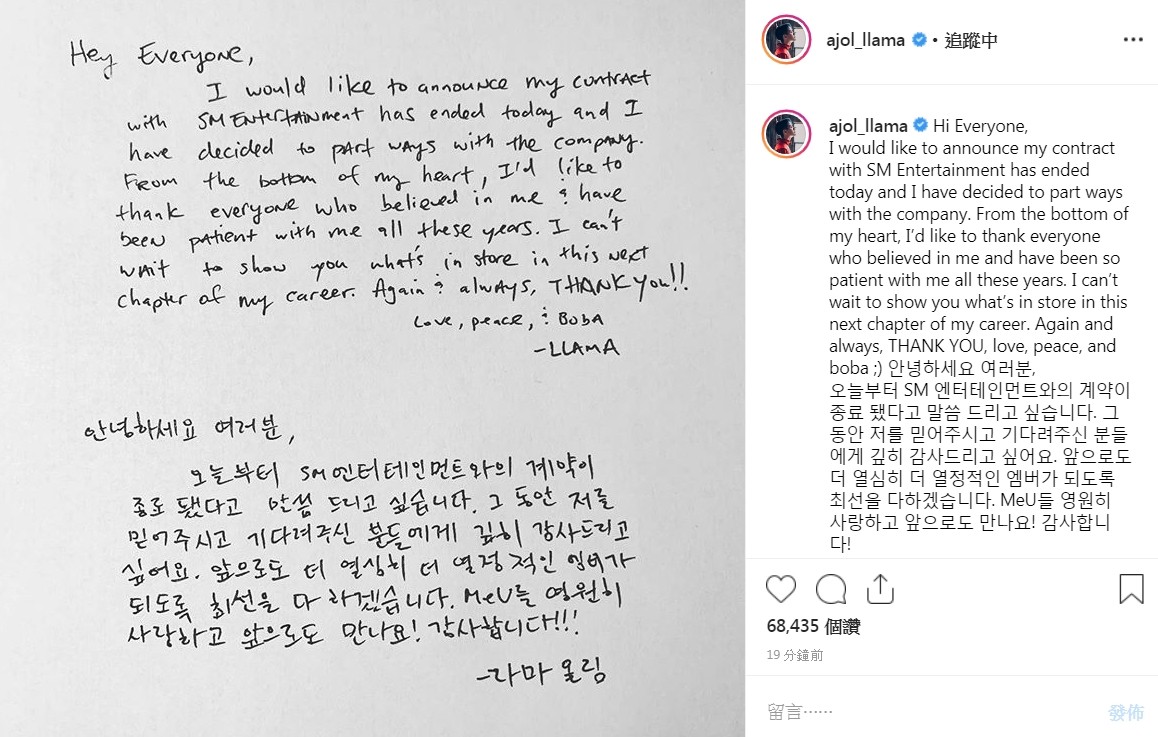 Hey Everyone,
I would like to announce my contract
with SM Entertainment has ended today and I
have decided to part ways with the company.
From the bottom of my heart, I'd like to
thank everyone who believed in me & have
been patient with me all these years. I can't
wait to show you what's in store in this next
chapter of my career. Again & always, THANK YOU!!
Love, peace, & BOBA
-LLAMA
안녕하세요 여러분,
오늘부터 SM엔터테인먼트와의 계약이
종료 됐다고 말씀 드리고 싶습니다. 그 동안 저를
믿어주시고 기다려주신 분들에게 깊히 감사드리고
싶어요. 앞으로도 더 열심히 더 열정적인 엠버가
되도록 최선을 다 하겠습니다. MeU들 영원히
사랑하고 앞으로도 만나요! 감사합니다!!!
-라마 올림
ajol_llama • 追蹤中
ajol_llama Hi Everyone,
I would like to announce my contract
with SM Entertainment has ended
today and I have decided to part ways
with the company. From the bottom of
my heart, I'd like to thank everyone
who believed in me and have been so
patient with me all these years. I can't
wait to show you what's in store in this
next chapter of my career. Again and
always, THANK YOU, love, peace, and
boba ;) 안녕하세요 여러분,
오늘부터 SM 엔터테인먼트와의 계약이
종료 됐다고 말씀 드리고 싶습니다. 그
동안 저를 믿어주시고 기다려주신 분들
에게 깊히 감사드리고 싶어요. 앞으로도
더 열심히 더 열정적인 엠버가 되도록
최선을 다하겠습니다. MeU들 영원히
사랑하고 앞으로도 만나요! 감사합니
다!
68,435 個讚
19 分鐘前
留言⋯⋯
發佈